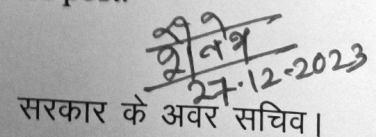 27.12.2023
सरकार के अवर सचिव।